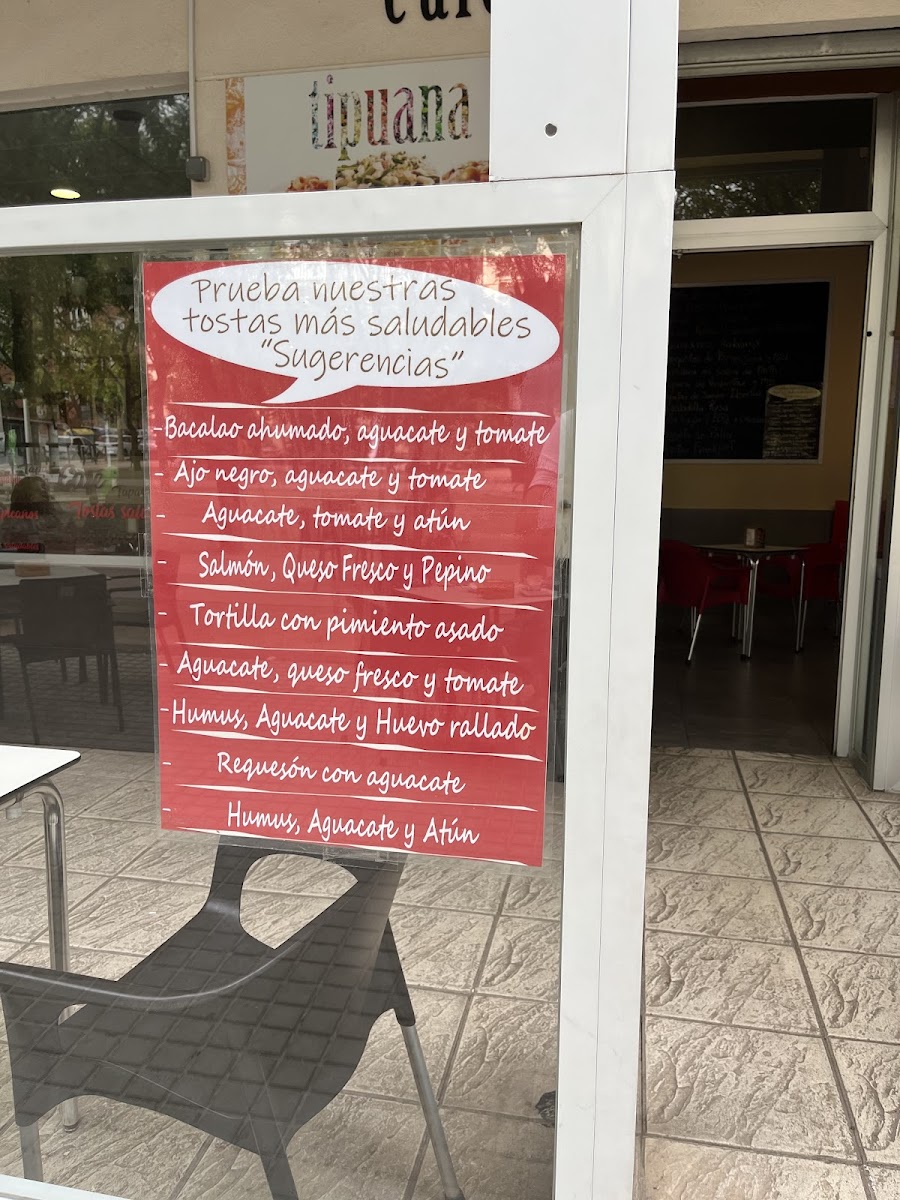 tipuana
Prueba nuestras
tostas más saludables
"Sugerencias"
- Bacalao ahumado, aguacate y tomate
- Ajo negro, aguacate y tomate
- Aguacate, tomate y atún
- Salmón, Queso Fresco y Pepino
- Tortilla con pimiento asado
- Aguacate, queso fresco y tomate
- Humus, Aguacate y Huevo rallado
- Requesón con aguacate
- Humus, Aguacate y Atún
Tostas